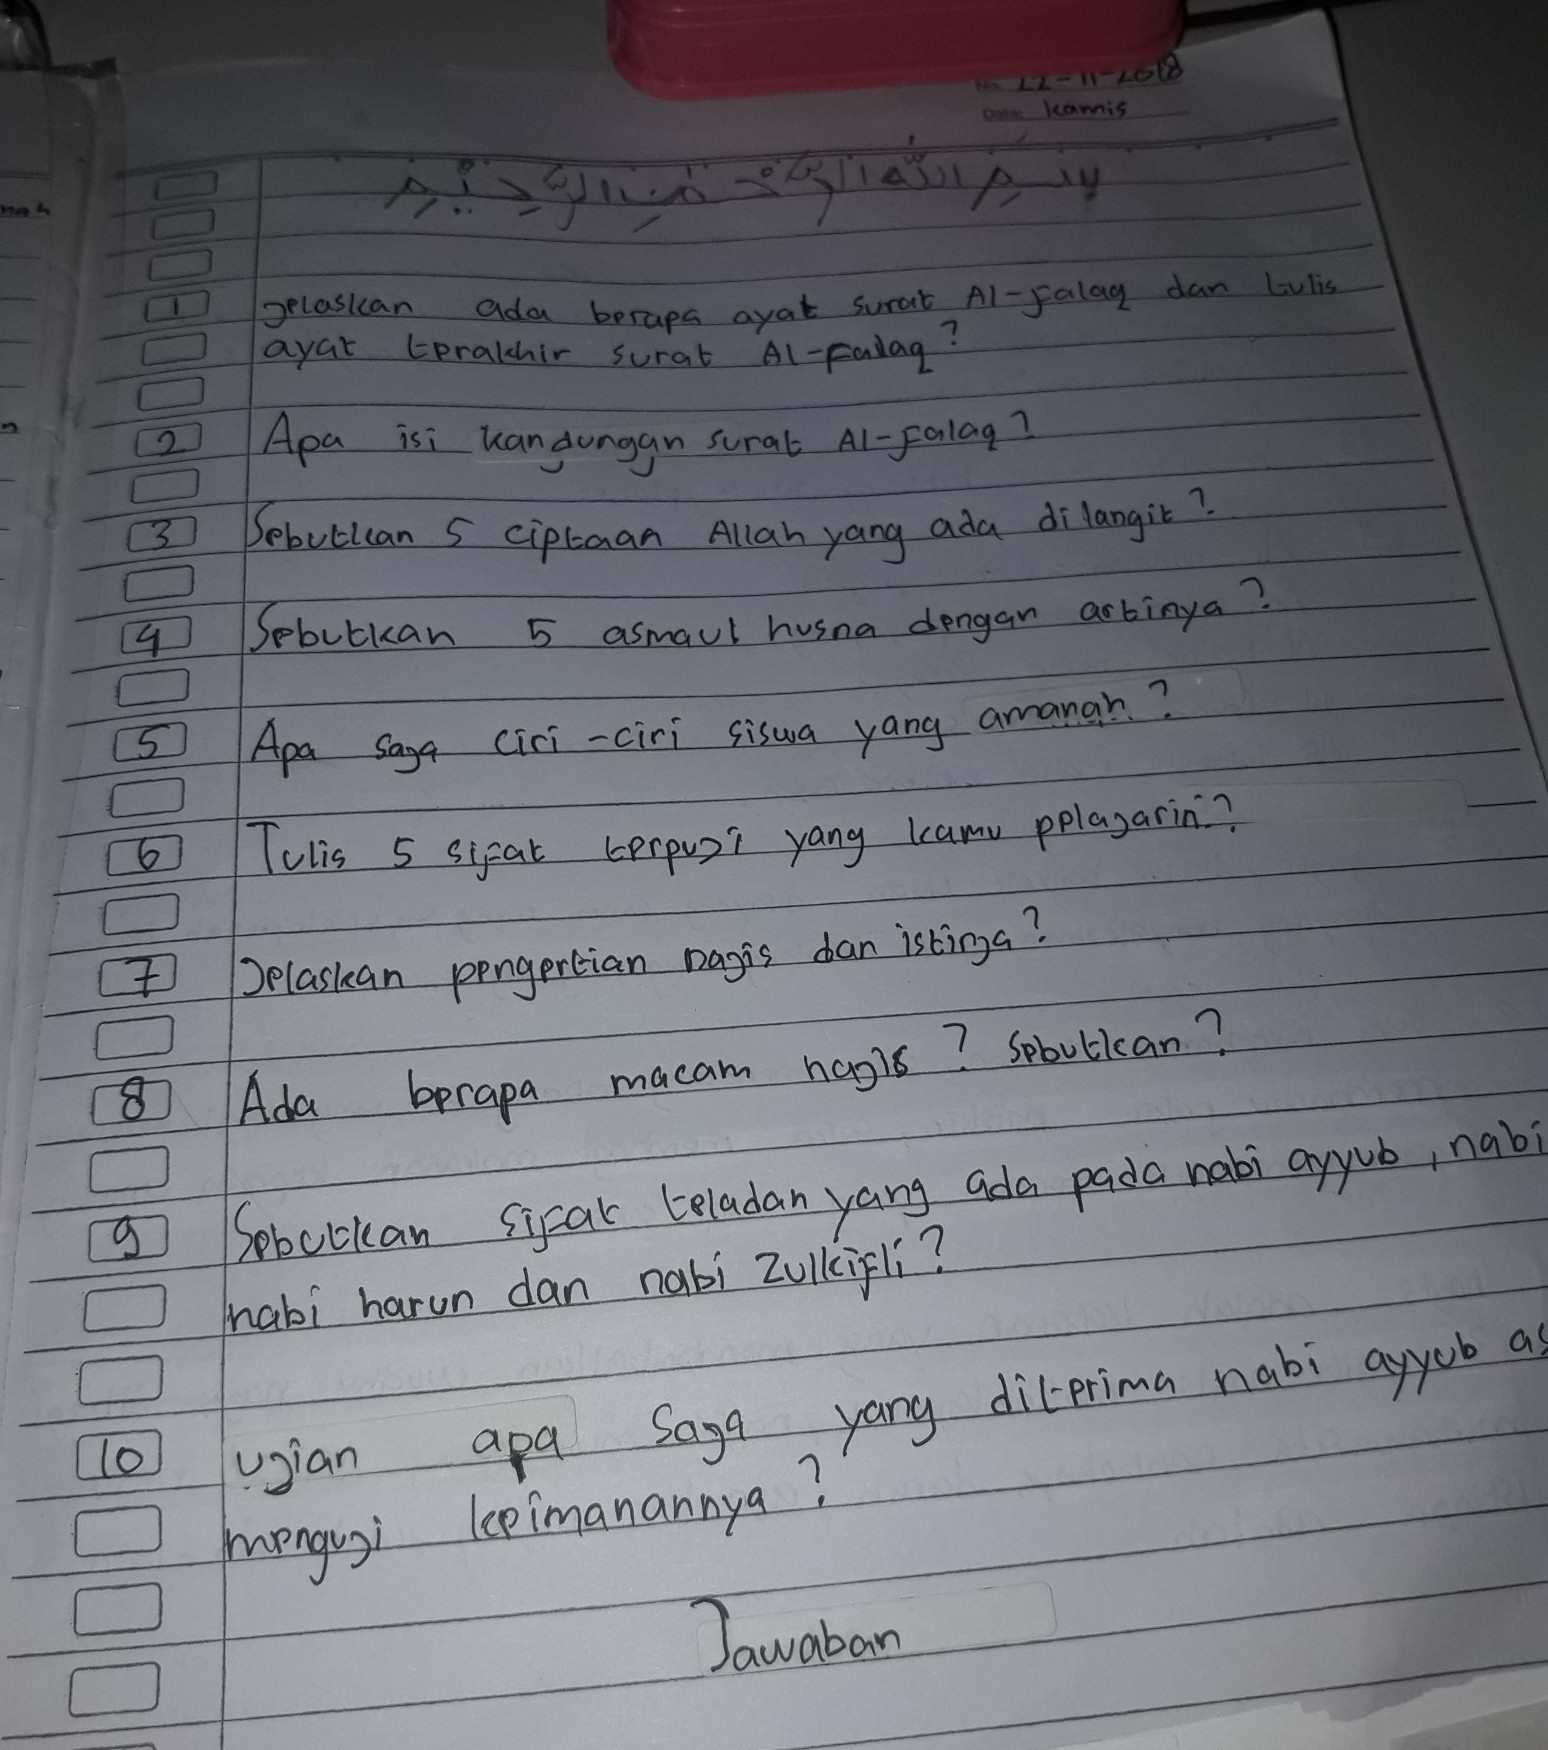 No. 22-11-2018
Date: kamis
بسم الله الرحمن الرحيم
1 Jelaskan ada berapa ayat surat Al-Falaq dan tulis
ayat terakhir surat Al-Falaq?
2 Apa isi kandungan surat Al-Falaq?
3 Sebutkan 5 ciptaan Allah yang ada dilangit?
4 Sebutkan 5 asmaul husna dengan artinya?
5 Apa saja ciri-ciri siswa yang amanah?
6 Tulis 5 sifat terpuji yang kamu pelajarin?
7 Jelaskan pengertian najis dan istinja?
8 Ada berapa macam najis? Sebutkan?
9 Sebutkan sifat teladan yang ada pada nabi ayyub, nabi
nabi harun dan nabi zulkifli?
10 ujian apa saja yang diterima nabi ayyub as
menguji keimanannya?
Jawaban